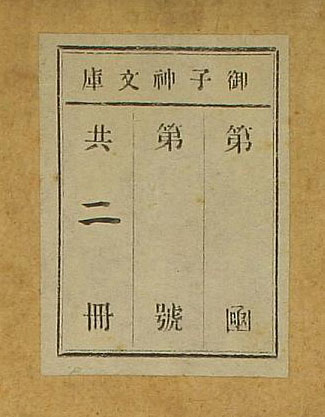 御子神文庫
第 函
第 號
共二冊